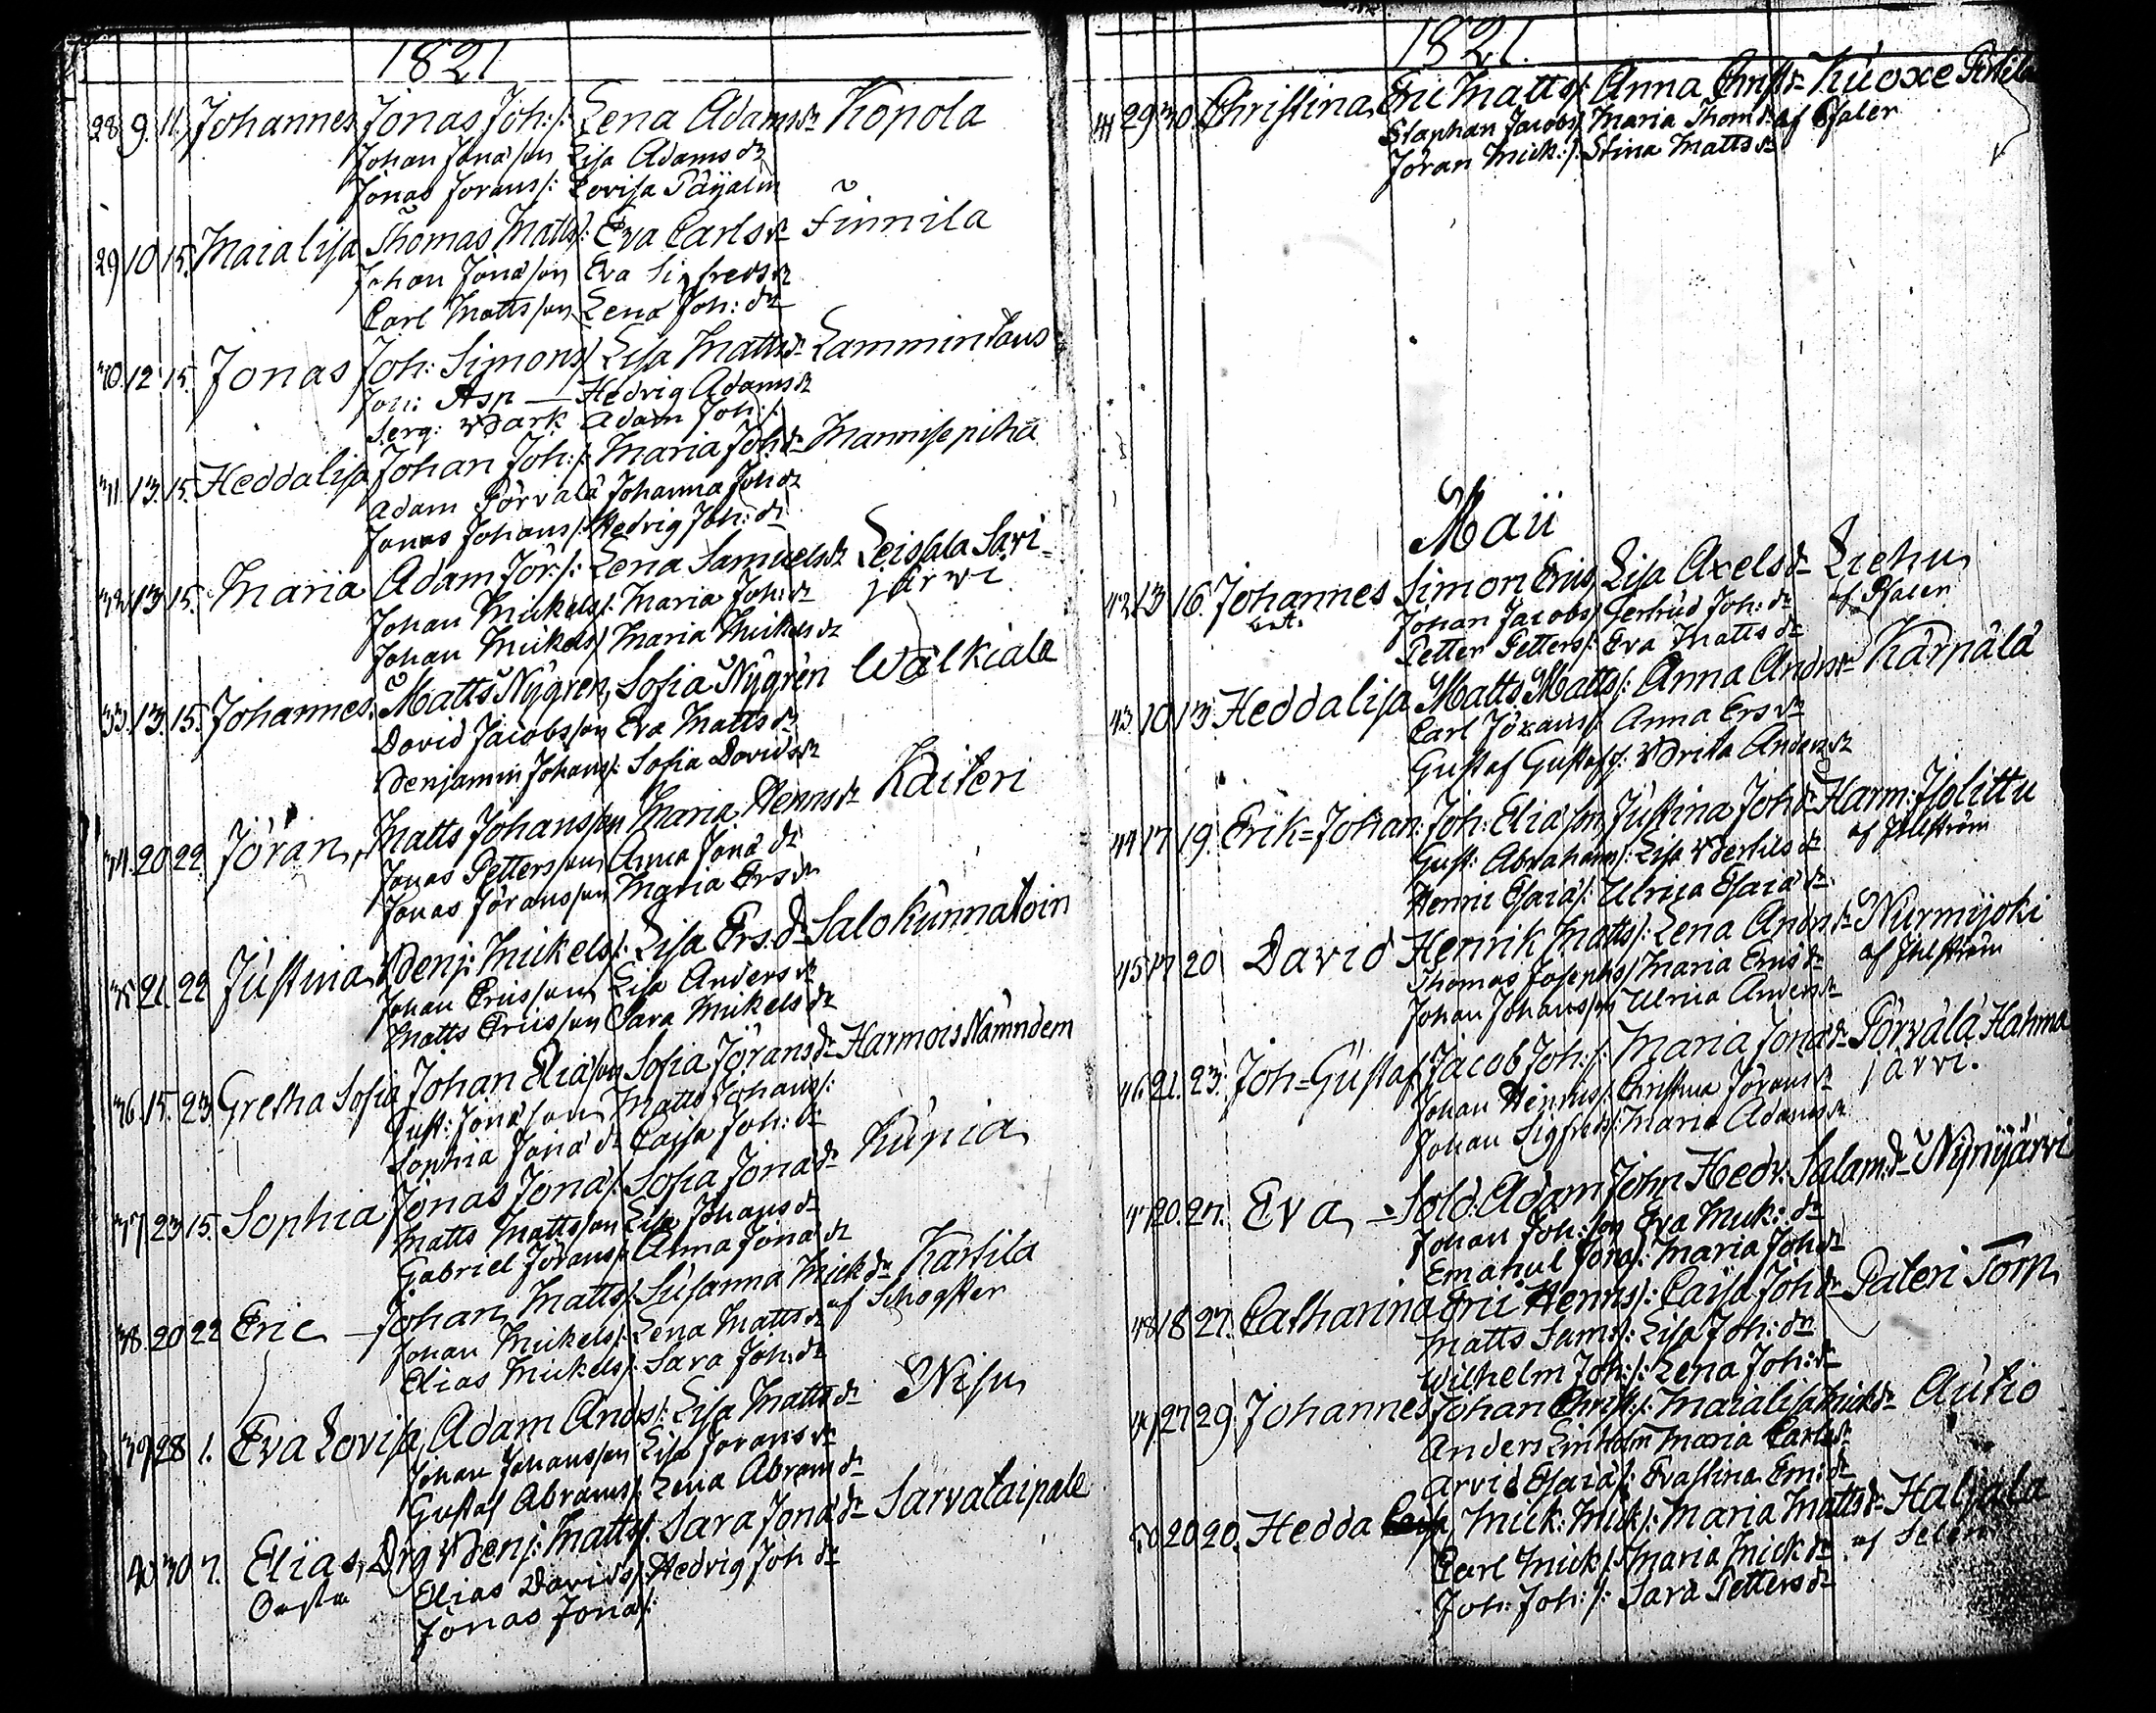 1821
28 9. 11. Johannes Jonas Joh:s/: Lena Adamsdr Kopola
Johan Jonasson Lisa Adamsdr
Jonas Jorans/: Lovisa Päÿalin
29 10 15. Maialisa Thomas Matts/: Eva Carlsdr Finnila
Johan Jonasson Eva Sigfredsdr
Carl Mattsson Lena Joh:dr
30. 12. 15. Jonas Joh: Simons/ Lisa Mattsdr Lammintaus
Joh: Asp — Hedvig Adamsdr
Serg: Bark Adam Joh:/:
31. 13. 15. Heddalisa Johan Joh:/: Maria Johdr Mannisepihä
Adam Porvala Johanna Johdr
Jonas Johans/: Hedvig Joh:dr
32. 13. 15. Maria Adam Jör:/: Lena Samuelsdr Leislala Sari=
Johan Mickels/: Maria Joh:dr järvi
Johan Mickels/ Maria Mickelsdr
33. 13. 15. Johannes. Matts Nÿgren, Sofia Nÿgren Wälkiala
David Jacobsson Eva Mattsdr
Benjamin Johans/: Sofia Davidsdr
34. 20 22. Jöran, Matts Johansson Maria Henrsdr Kaiteri
Jonas Pettersson Anna Jonadr
Jonas Jöransson Maria Ersdr
35 21. 22 Justina Benj: Mickels/: Lisa Ers.dr Salokunnatoin
Johan Ericsson Lisa Andersdr
Matts Ericsson Sara Mickelsdr
36. 15. 23 Gretha Sofia Johan Eliasson Sofia Jöransdr Harmois Nämndem
Gust: Jonasson Matts Johans/:
Sophia Jonadr Caisa Joh:dr
37 23 15. Sophia Jonas Jona/: Sofia Jonadr Kunia
Matts Mattsson Lisa Johansdr
Gabriel Jörans/: Anna Jonadr
38. 20 22 Eric — Johan Matts/: Susanna Mickdr Kartila
Johan Mickels/: Lena Mattsdr af Schogster
Elias Mickels/: Sara Joh:dr
39 28 1. Eva Lovisa Adam Anders/: Lisa Mattsdr Nisu
Johan Johansson Lisa Joransdr
Gustaf Abrams/: Lena Abramdr
40 30 7. Elias, Drg Benj: Matts/: Sara Jonadr Sarvataipale
Oästa Elias Davids/ Hedvig Johdr
Jonas Jona/:
1821.
41 29 30. Christina Eric Matts/: Anna Christdr Kuoxe Pertila
Staphan Jacobs/ Maria Thomdr af Psaler
Jöran Mick:/: Stina Mattsdr
Maii
42 13 16. Johannes Simon Erics/ Lisa Axelsdr Liehu
Johan Jacobs/ Gertrud Joh:dr af Psaler
Petter Petters/: Eva Mattsdr
43 10 13 Heddalisa Matts Matts/: Anna Andrsdr Kärpälä
Carl Jörans/: Anna Ersdr
Gustaf Gustafs/: Brita Andersdr
44 17 19. Erik=Johan: Joh: Eliasson Justina Johdr Harm: Isolittu
Gust: Abrahams/: Lisa Bertilsdr af Ihlström
Henric Esaia/: Ulrica Esaiadr
45 17 20 David Henrik Matts/: Lena Andrsdr Nurmijoki
Thomas Josephs/ Maria Ericsdr af Ihlström
Johan Johansson Ulrica Andersdr
46 21. 23. Joh=Gustaf Jacob Joh:/: Maria Jonadr Porvala Hahma
Johan Henrics/: Christina Jöransdr järvi.
Johan Sigfreds/: Maria Adamsdr
47 20. 27. Eva — Sold: Adam John Hedv: Salam:dr Nÿnÿjärvi
Johan Joh:son Eva Mick:dr
Emanuel Jona/: Maria Johdr
48 18 27. Catharina Eric Henrs/: Caisa Johdr Pateri Torp
Matts Sam:/: Lisa Joh:dr
Wilhelm Joh:/: Lena Joh:dr
49 27 29. Johannes Johan Christ:/: Maialisa Mickdr Autio
Anders Maria Carlsdr
Arvid Esaia/: Evastina Em:dr
50 20 20. Hedda Mick: Mick/: Maria Mattsdr Haljala
Carl Mick/: Maria Mickdr af
Joh: Joh:/: Sara Pettersdr